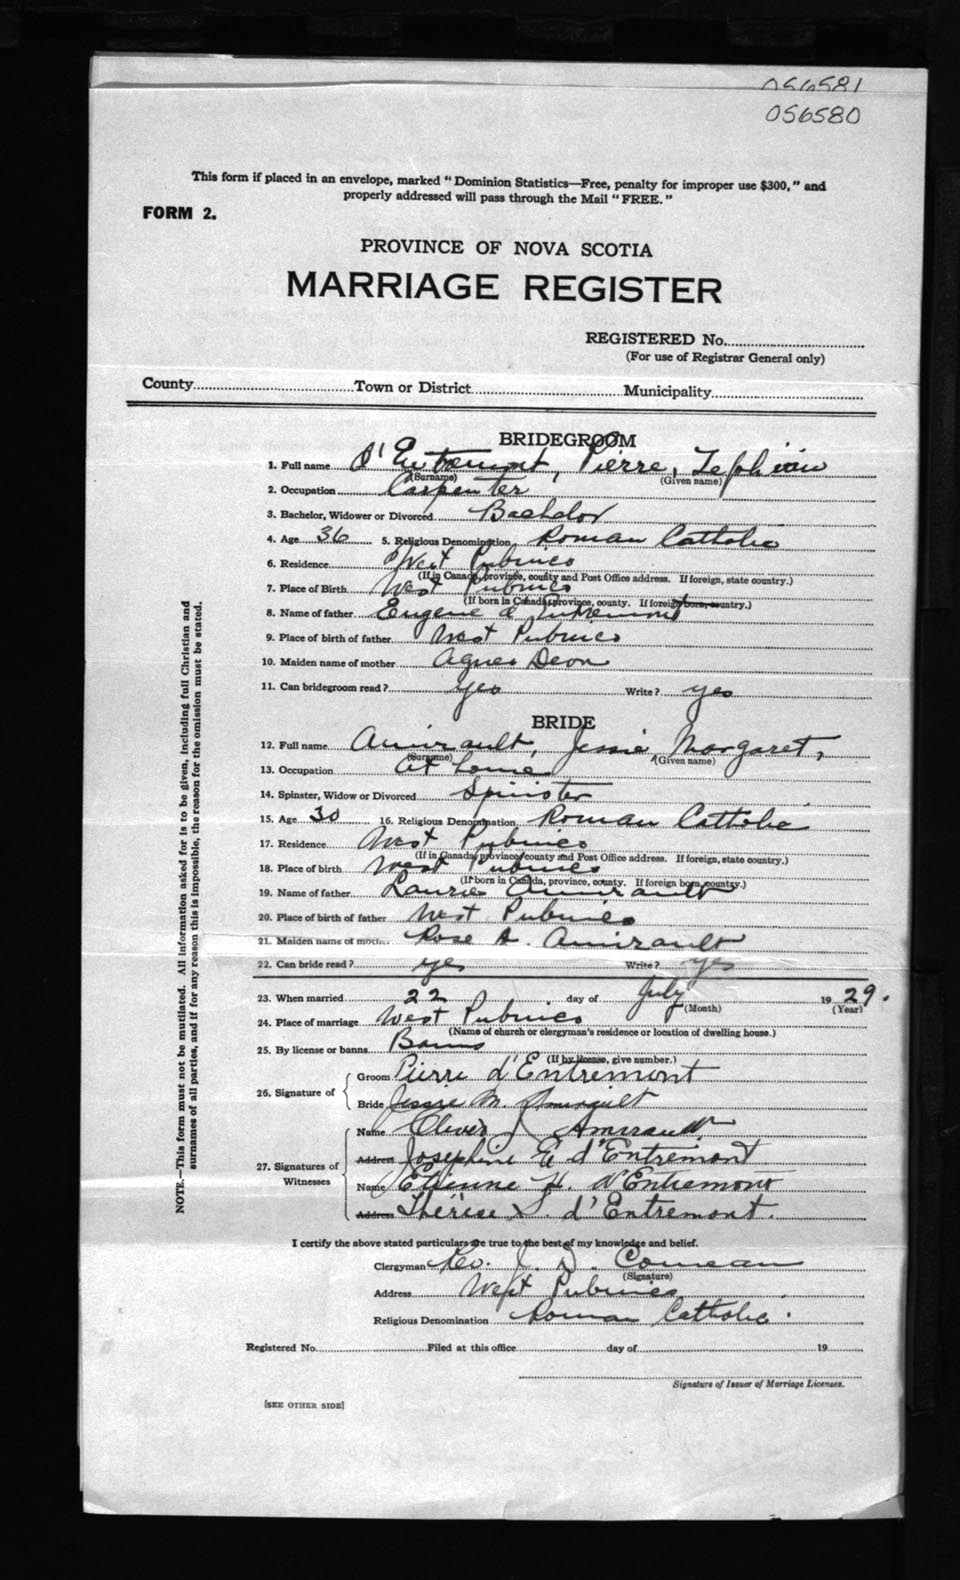 056581
056580
This form if placed in an envelope, marked "Dominion Statistics—Free, penalty for improper use $300," and
properly addressed will pass through the Mail "FREE."
FORM 2.
PROVINCE OF NOVA SCOTIA
MARRIAGE REGISTER
REGISTERED No.
(For use of Registrar General only)
County Town or District Municipality
BRIDEGROOM
1. Full name d'Entremont, Pierre,
(Surname) (Given name)
2. Occupation Carpenter
3. Bachelor, Widower or Divorced Bachelor
4. Age 36 5. Religious Denomination Roman Catholic
6. Residence West Pubnico
(If in Canada, province, county and Post Office address. If foreign, state country.)
7. Place of Birth West Pubnico
(If born in Canada, province, county. If foreign born, country.)
8. Name of father Eugene d'Entremont
9. Place of birth of father West Pubnico
10. Maiden name of mother Agnes Deon
11. Can bridegroom read? yes Write? yes
BRIDE
12. Full name Amirault, Jessie Margaret,
(Surname) (Given name)
13. Occupation at home
14. Spinster, Widow or Divorced Spinster
15. Age 30 16. Religious Denomination Roman Catholic
17. Residence West Pubnico
(If in Canada, province, county and Post Office address. If foreign, state country.)
18. Place of birth West Pubnico
(If born in Canada, province, county. If foreign born, country.)
19. Name of father Laurie Amirault
20. Place of birth of father West Pubnico
21. Maiden name of mother Rose A. Amirault
22. Can bride read? yes Write? yes
23. When married 22 day of July 1929.
(Month) (Year)
24. Place of marriage West Pubnico
(Name of church or clergyman's residence or location of dwelling house.)
25. By license or banns Banns
(If by license, give number.)
26. Signature of Groom Pierre d'Entremont
Bride Jessie M. Amirault
27. Signatures of Witnesses
Name J Amirault
Address Josephine E d'Entremont
Name Etienne H. d'Entremont
Address Thérèse S. d'Entremont.
I certify the above stated particulars are true to the best of my knowledge and belief.
Clergyman Rev. J. D. Comeau
(Signature)
Address West Pubnico
Religious Denomination Roman Catholic.
Registered No. Filed at this office day of 19
Signature of Issuer of Marriage Licenses.
[SEE OTHER SIDE]
NOTE.—This form must not be mutilated. All information asked for is to be given, including full Christian and
surnames of all parties, and if for any reason this is impossible, the reason for the omission must be stated.